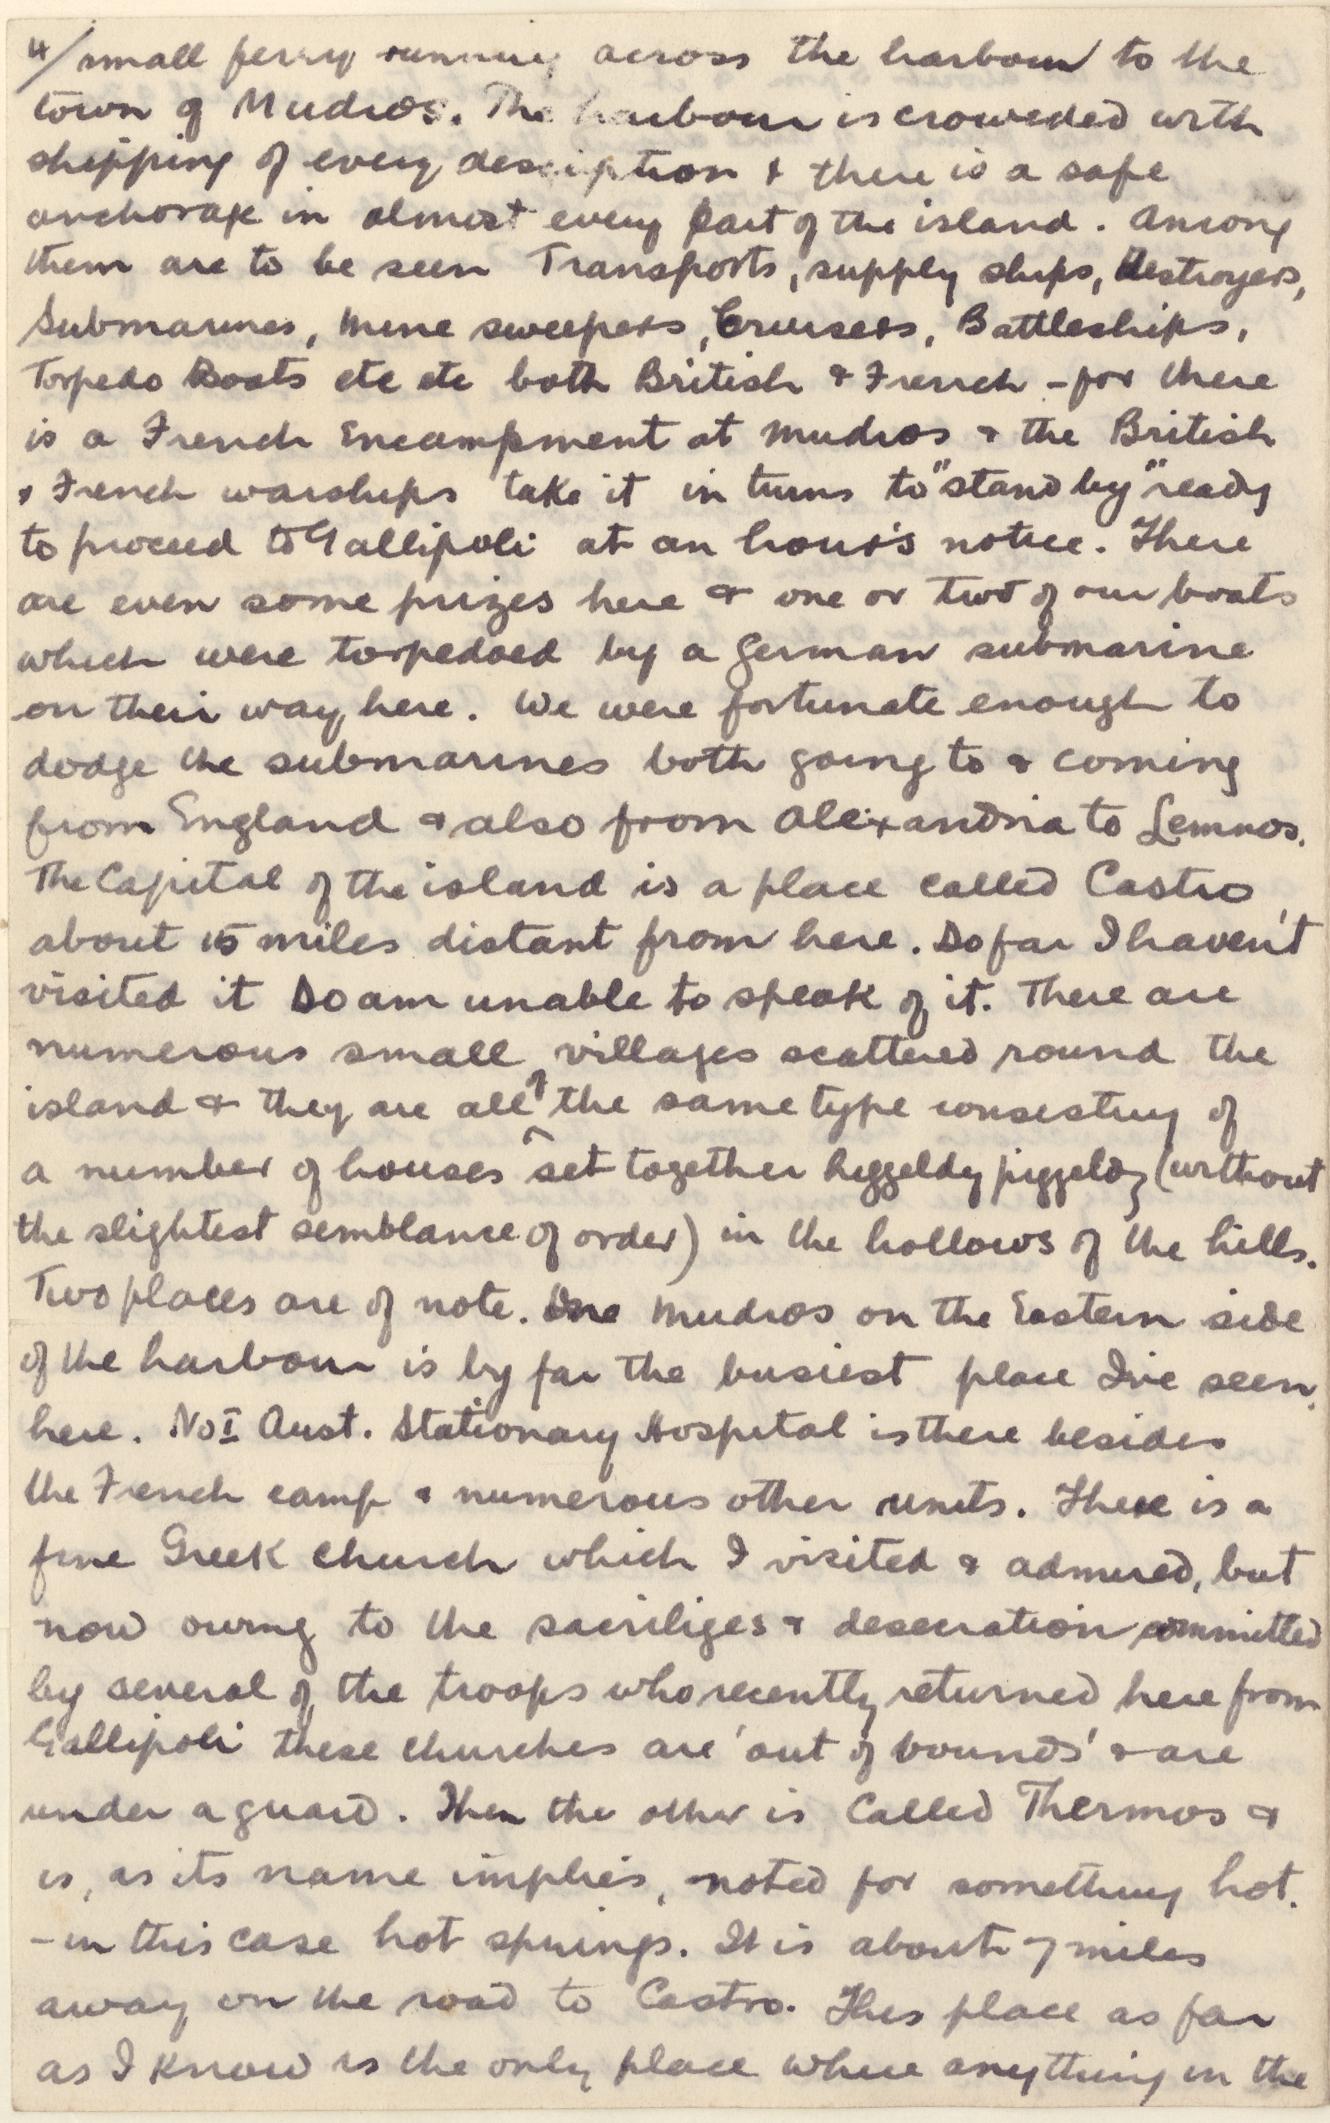 4/ small ferry running across the harbour to the
town of Mudros. The harbour is croweded with
shipping of every description & there is a safe
anchorage in almost every part of the island. Among
them are to be seen Transports, supply ships, Destroyers,
Submarines, Mine sweepers, Cruisers, Battleships,
Torpedo Boats etc etc both British & French - for there
is a French Encampment at Mudros & the British
& French warships take it in turns to "stand by" ready
to proceed to Gallipoli at an hour's notice. There
are even some prizes here & one or two of our boats
which were torpedoed by a German submarine
on their way here. We were fortunate enough to
dodge the submarines both going to & coming
from England & also from Alexandria to Lemnos.
The Capital of the island is a place called Castro
about 15 miles distant from here. So far I haven't
visited it so am unable to speak of it. There are
numerous small villages scattered round the
island & they are all of the same type consisting of
a number of houses set together higgeldy piggeldy (without
the slightest semblance of order) in the hollows of the hills.
Two places are of note. One Mudros on the Eastern side
of the harbour is by far the busiest place I've seen
here. No I Aust. Stationary Hospital is there besides
the French camp & numerous other units. There is a
fine Greek Church which I visited & admired, but
now owing to the sacriliges & desecration committed
by several of the troops who recently returned here from
Gallipoli these churches are 'out of bounds' & are
under a guard. Then the other is Called Thermos &
is, as its name implies, noted for something hot.
- in this case hot springs. It is about 7 miles
away on the road to Castro. This place as far
as I know is the only place where anything in the